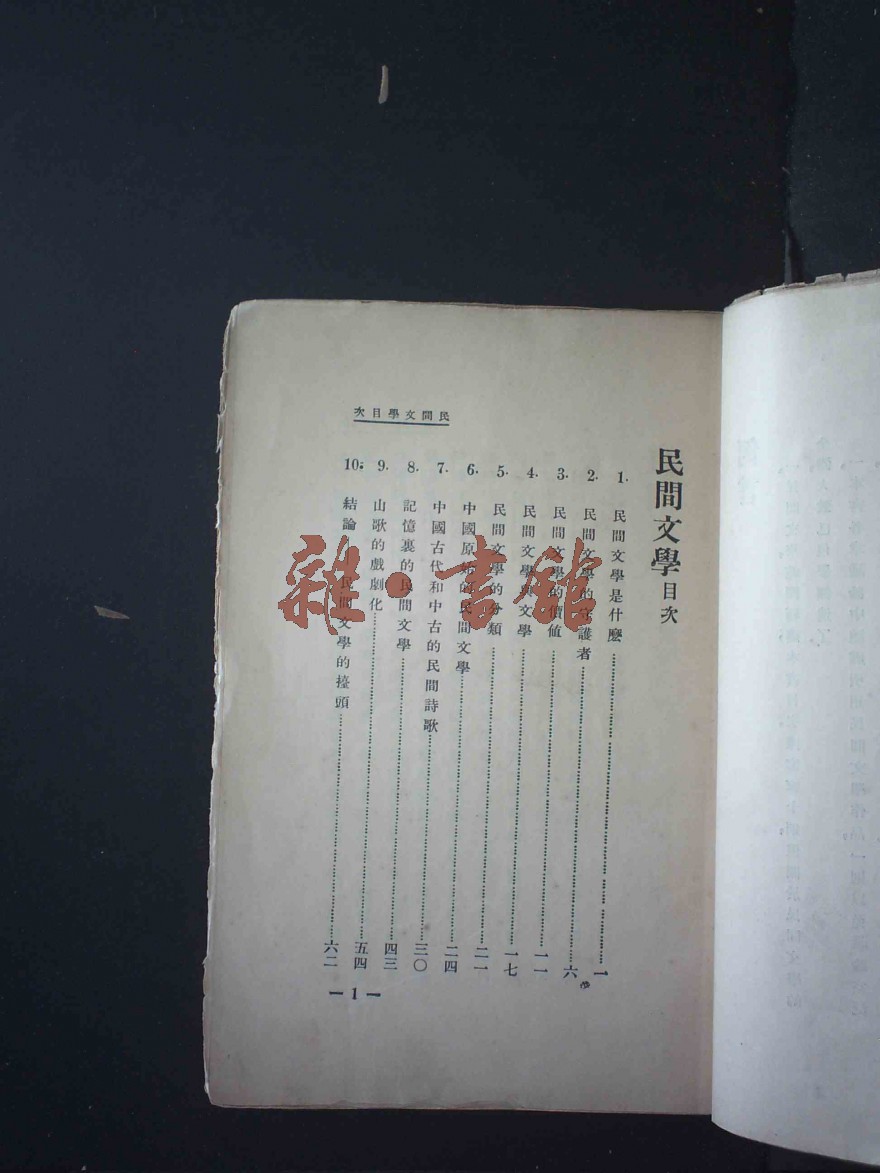 民間文學目次
民間文學目次
1. 民間文學是什麼……一
2. 民間文學的守護者……六
3. 民間文學的價値……一一
4. 民間文學與文學……一七
5. 民間文學的分類……二一
6. 中國原始的民間文學……二四
7. 中國古代和中古的民間詩歌……三〇
8. 記憶裏的民間文學……四三
9. 山歌的戲劇化……五四
10. 結論 民間文學的擡頭……六二
— 1 —
雜·書館